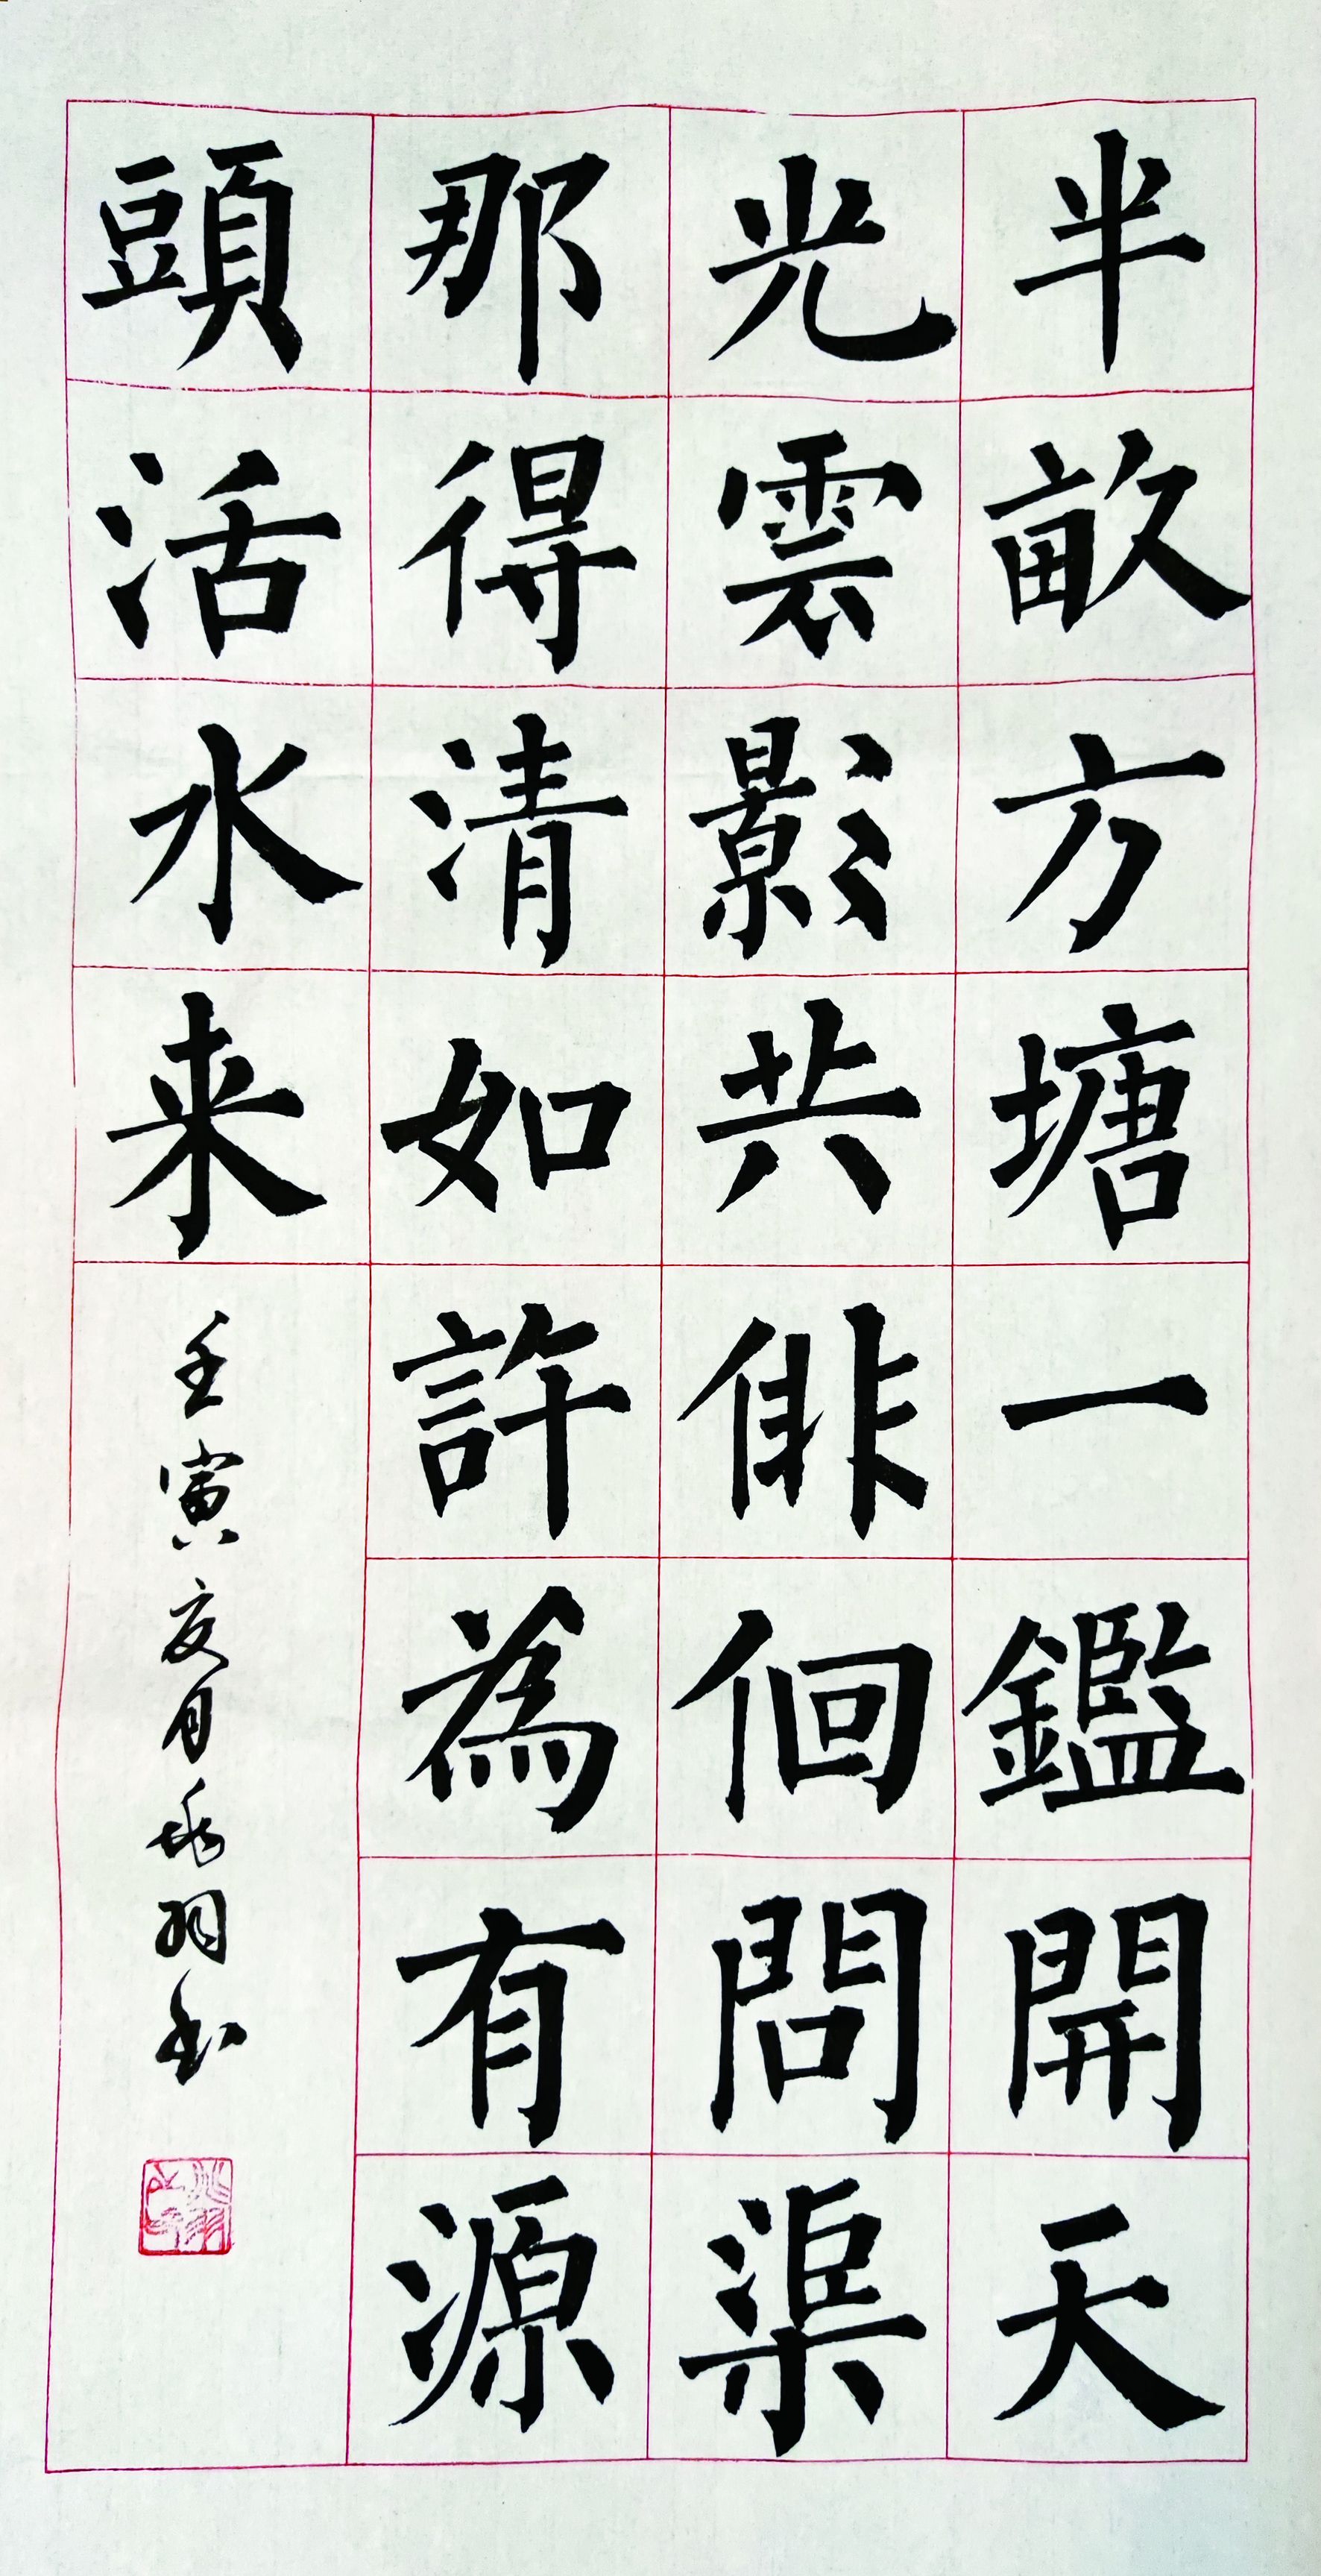 半畝方塘一鑑開天
光雲影共俳佪問渠
那得清如許為有源
頭活水来
壬寅夏月兆羽书